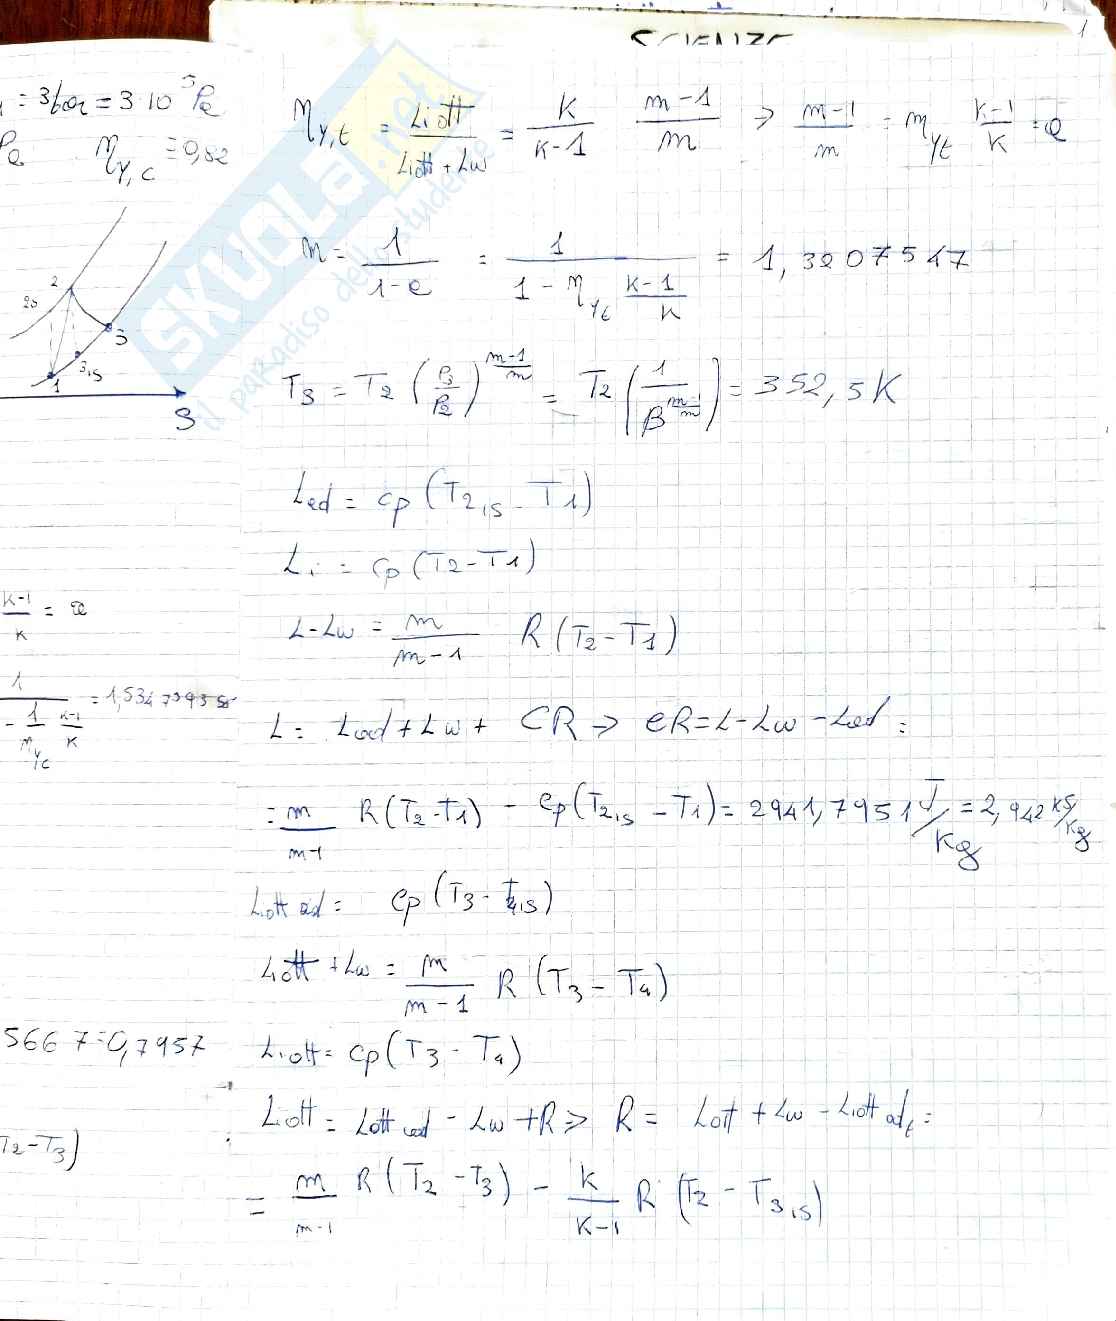 SCIENZE
1
= 3bar = 3 10^5 Pa
Pa η_{y,c} = 0,82
2
2s
3
3,s
1
S
k-1/k = x
1/(-1/η_{yc} k-1/k) = 1,534
5667=0,7957
T2-T3)
η_{y,t} = Liott/(Liott + Lw) = k/(k-1) m-1/m ⇒ m-1/m = η_{yt} k-1/k = e
m = 1/(1-e) = 1/(1 - η_{yt} k-1/k) = 1,3207547
T3 = T2 (P3/P2)^{m-1/m} = T2 (1/β^{m-1/m}) = 352,5K
Lad = cp (T2,is - T1)
Li = cp (T2-T1)
L-Lw = m/(m-1) R (T2-T1)
L = Lad + Lw + CR ⇒ CR = L-Lw -Lad =
= m/(m-1) R (T2-T1) - cp (T2,is - T1) = 2941,7951 J/kg = 2,942 kJ/kg
Liott ad = cp (T3 - T4,is)
Liott + Lw = m/(m-1) R (T3 - T4)
Liott = cp (T3 - T4)
Liott = Lott ad - Lw + R ⇒ R = Lott + Lw - Liott ad,t =
= m/(m-1) R (T2 - T3) - k/(k-1) R (T2 - T3,is)
SKUOLA.net
il paradiso dello studente